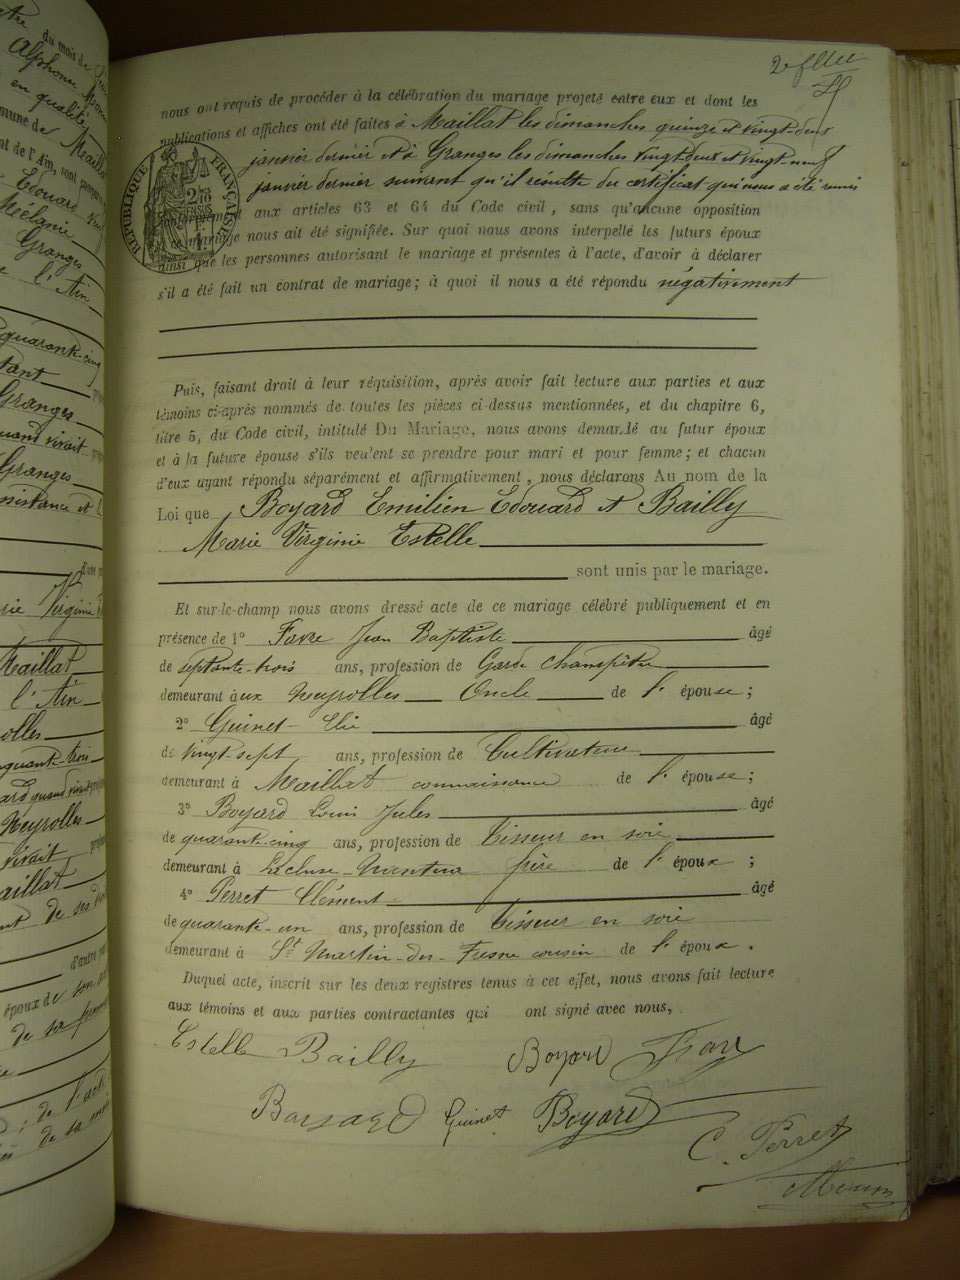 tre
du mois de
Alphonse
en qualité
mune de Maillat
nt de l'Ain, sont
Edouard
Mélanie
Granges
l'Ain
quarante-cinq
tant
Granges
quand vivait
Granges
ssistance et
d'une
rie Virginie
Maillat
l'Ain
olles
quante-trois
ard quand vivait
Neyrolles
vivait
aillat
nt de ses
d'autre part
époux de son
de sa
; de l'acte
de sa
2e
nous ont requis de procéder à la célébration du mariage projeté entre eux et dont les
publications et affiches ont été faites à Maillat les dimanches quinze et vingt-deux
janvier dernier et à Granges les dimanches vingt-deux et vingt neuf
janvier dernier suivant qu'il résulte du certificat qui nous a été remis
RÉPUBLIQUE FRANÇAISE
conformément aux articles 63 et 64 du Code civil, sans qu'aucune opposition
ce mariage nous ait été signifiée. Sur quoi nous avons interpellé les futurs époux
ainsi que les personnes autorisant le mariage et présentes à l'acte, d'avoir à déclarer
s'il a été fait un contrat de mariage; à quoi il nous a été répondu négativement
Puis, faisant droit à leur réquisition, après avoir fait lecture aux parties et aux
témoins ci-après nommés de toutes les pièces ci-dessus mentionnées, et du chapitre 6,
titre 5, du Code civil, intitulé Du Mariage, nous avons demandé au futur époux
et à la future épouse s'ils veulent se prendre pour mari et pour femme; et chacun
d'eux ayant répondu séparément et affirmativement, nous déclarons Au nom de la
Loi que Boyard Emilien Edouard et Bailly
Marie Virginie Estelle
sont unis par le mariage.
Et sur-le-champ nous avons dressé acte de ce mariage célébré publiquement et en
présence de 1° Favre Jean Baptiste âgé
de septante-trois ans, profession de Garde Champêtre
demeurant aux Neyrolles Oncle de l'épouse;
2° Guinet Elie âgé
de vingt-sept ans, profession de Cultivateur
demeurant à Maillat connaissance de l'épouse;
3° Boyard Louis Jules âgé
de quarante-cinq ans, profession de Tisseur en soie
demeurant à Lécluse-Nantua frère de l'époux;
4° Perret Clément âgé
de quarante-un ans, profession de Tisseur en soie
demeurant à St Martin-du-Fresne cousin de l'époux.
Duquel acte, inscrit sur les deux registres tenus à cet effet, nous avons fait lecture
aux témoins et aux parties contractantes qui ont signé avec nous,
Estelle Bailly Boyard Favre
Boyard Guinet Boyard
C. Perret